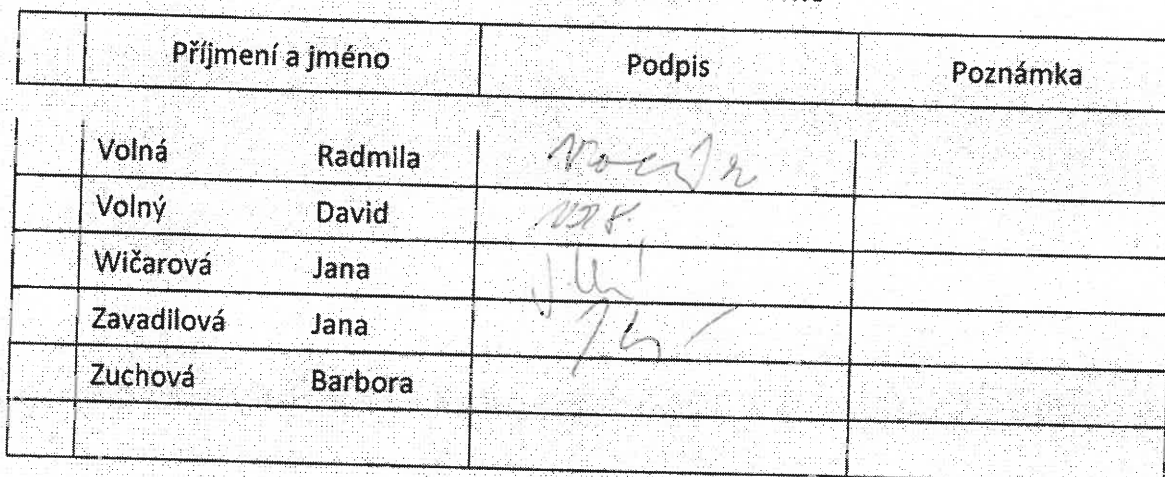 Příjmení a jméno Podpis Poznámka
Volná Radmila
Volný David
Wičarová Jana
Zavadilová Jana
Zuchová Barbora